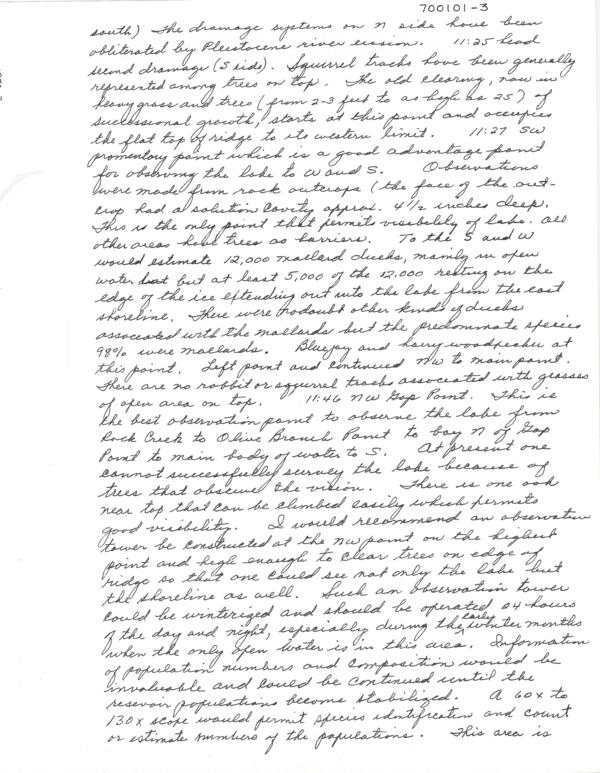 700101-3
south) The drainage systems on N side have been
obliterated by Pleistocene river erosion. 11:25 head
second drainage (S side). Squirrel tracks have been generally
represented among trees on top. The old clearing, now in
heavy grass and trees (from 2-3 feet to as high as 25') of
successional growth, starts at this point and occupies
the flat top of ridge to its western limit. 11:27 SW
promontory point which is a good advantage point
for observing the lake to W and S. Observations
were made from rock outcrops (the face of the out-
crop had a solution cavity approx. 4 1/2 inches deep.
This is the only point that permits visibility of lake. All
other areas have trees as barriers. To the S and W
would estimate 12,000 mallard ducks, mainly in open
water but at least 5,000 of the 12,000 resting on the
edge of the ice extending out into the lake from the east
shoreline. There were no doubt other kinds of ducks
associated with the mallards but the predominate species
98% were mallards. Bluejay and hairy woodpecker at
this point. Left point and continued NW to main point.
There are no rabbit or squirrel tracks associated with grasses
of open area on top. 11:46 NW Gap Point. This is
the best observation point to observe the lake from
Rock Creek to Olive Branch Point to bay N of Gap
Point to main body of water to S. At present one
cannot successfully survey the lake because of
trees that obscure the vision. There is one oak
near top that can be climbed easily which permits
good visibility. I would recommend an observation
tower be constructed at the NW point on the highest
point and high enough to clear trees on edge of
ridge so that one could see not only the lake but
the shoreline as well. Such an observation tower
could be winterized and should be operated 24 hours
of the day and night, especially during the early winter months
when the only open water is in this area. Information
of population numbers and composition would be
invaluable and could be continued until the
reservoir populations become stabilized. A 60x to
130x scope would permit species identification and count
or estimate numbers of the populations. This area is